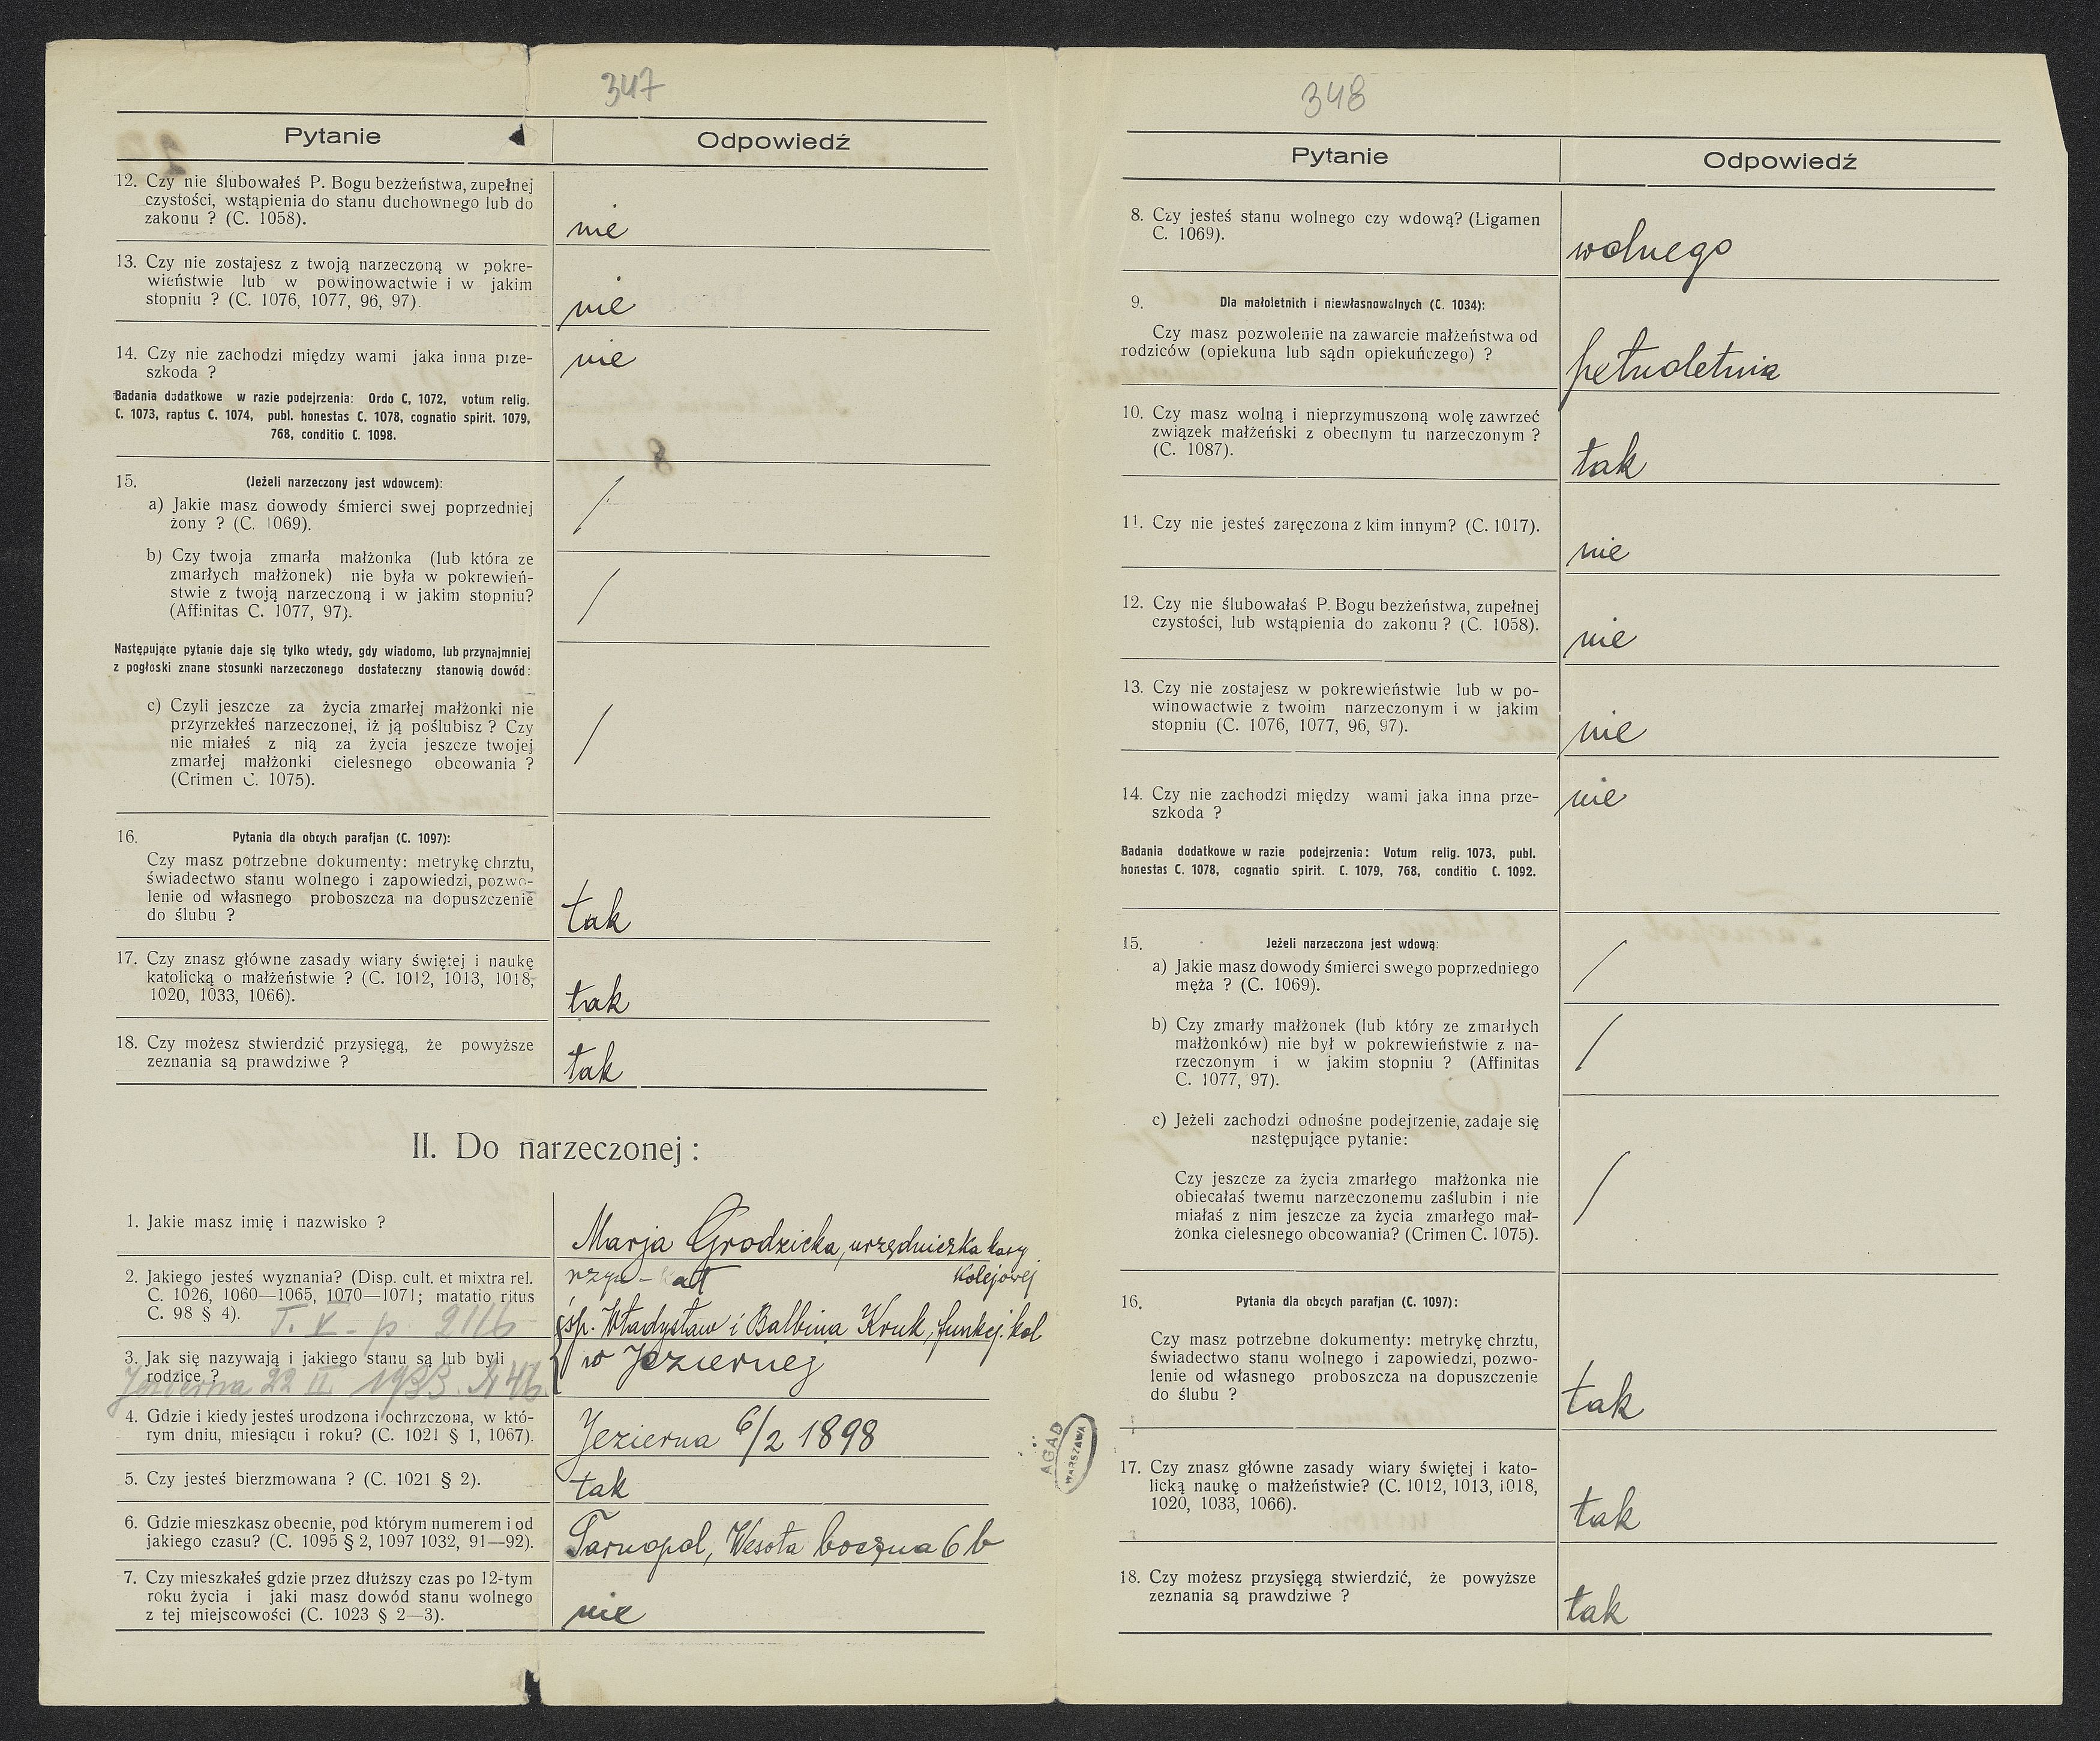 347
Pytanie
Odpowiedź
12. Czy nie ślubowałeś P. Bogu bezżeństwa, zupełnej
czystości, wstąpienia do stanu duchownego lub do
zakonu ? (C. 1058).
nie
13. Czy nie zostajesz z twoją narzeczoną w pokre-
wieństwie lub w powinowactwie i w jakim
stopniu ? (C. 1076, 1077, 96, 97).
nie
14. Czy nie zachodzi między wami jaka inna prze-
szkoda ?
nie
Badania dodatkowe w razie podejrzenia: Ordo C, 1072, votum relig.
C. 1073, raptus C. 1074, publ. honestas C. 1078, cognatio spirit. 1079,
768, conditio C. 1098.
15. (Jeżeli narzeczony jest wdowcem):
a) Jakie masz dowody śmierci swej poprzedniej
żony ? (C. 1069).
/
b) Czy twoja zmarła małżonka (lub która ze
zmarłych małżonek) nie była w pokrewień-
stwie z twoją narzeczoną i w jakim stopniu?
(Affinitas C. 1077, 97).
/
Następujące pytanie daje się tylko wtedy, gdy wiadomo, lub przynajmniej
z pogłoski znane stosunki narzeczonego dostateczny stanowią dowód:
c) Czyli jeszcze za życia zmarłej małżonki nie
przyrzekłeś narzeczonej, iż ją poślubisz ? Czy
nie miałeś z nią za życia jeszcze twojej
zmarłej małżonki cielesnego obcowania ?
(Crimen C. 1075).
/
16. Pytania dla obcych parafjan (C. 1097):
Czy masz potrzebne dokumenty: metrykę chrztu,
świadectwo stanu wolnego i zapowiedzi, pozwo-
lenie od własnego proboszcza na dopuszczenie
do ślubu ?
tak
17. Czy znasz główne zasady wiary świętej i naukę
katolicką o małżeństwie ? (C. 1012, 1013, 1018,
1020, 1033, 1066).
tak
18. Czy możesz stwierdzić przysięgą, że powyższe
zeznania są prawdziwe ?
tak
II. Do narzeczonej :
1. Jakie masz imię i nazwisko ?
Marja Grodzicka, urzędniczka kasy
kolejowej
2. Jakiego jesteś wyznania? (Disp. cult. et mixtra rel.
C. 1026, 1060—1065, 1070—1071; matatio ritus
C. 98 § 4).
rzym-kat
T. V - p. 2116
3. Jak się nazywają i jakiego stanu są lub byli
rodzice ?
śp. Władysław i Balbina Kruk, funkcj. kol
w Jeziernej
Jezierna 22 II 1933. N 46
4. Gdzie i kiedy jesteś urodzona i ochrzczona, w któ-
rym dniu, miesiącu i roku? (C. 1021 § 1, 1067).
Jezierna 6/2 1898
5. Czy jesteś bierzmowana ? (C. 1021 § 2).
tak
6. Gdzie mieszkasz obecnie, pod którym numerem i od
jakiego czasu? (C. 1095 § 2, 1097 1032, 91—92).
Tarnopol, Wesoła boczna 6 b
7. Czy mieszkałeś gdzie przez dłuższy czas po 12-tym
roku życia i jaki masz dowód stanu wolnego
z tej miejscowości (C. 1023 § 2—3).
nie
AGAD
WARSZAWA
348
Pytanie
Odpowiedź
8. Czy jesteś stanu wolnego czy wdową? (Ligamen
C. 1069).
wolnego
9. Dla małoletnich i niewłasnowolnych (C. 1034):
Czy masz pozwolenie na zawarcie małżeństwa od
rodziców (opiekuna lub sądn opiekuńczego) ?
pełnoletnia
10. Czy masz wolną i nieprzymuszoną wolę zawrzeć
związek małżeński z obecnym tu narzeczonym ?
(C. 1087).
tak
11. Czy nie jesteś zaręczona z kim innym? (C. 1017).
nie
12. Czy nie ślubowałaś P. Bogu bezżeństwa, zupełnej
czystości, lub wstąpienia do zakonu ? (C. 1058).
nie
13. Czy nie zostajesz w pokrewieństwie lub w po-
winowactwie z twoim narzeczonym i w jakim
stopniu (C. 1076, 1077, 96, 97).
nie
14. Czy nie zachodzi między wami jaka inna prze-
szkoda ?
nie
Badania dodatkowe w razie podejrzenia: Votum relig. 1073, publ.
honestas C. 1078, cognatio spirit. C. 1079, 768, conditio C. 1092.
15. Jeżeli narzeczona jest wdową:
a) Jakie masz dowody śmierci swego poprzedniego
męża ? (C. 1069).
/
b) Czy zmarły małżonek (lub który ze zmarłych
małżonków) nie był w pokrewieństwie z na-
rzeczonym i w jakim stopniu ? (Affinitas
C. 1077, 97).
/
c) Jeżeli zachodzi odnośne podejrzenie, zadaje się
następujące pytanie:
Czy jeszcze za życia zmarłego małżonka nie
obiecałaś twemu narzeczonemu zaślubin i nie
miałaś z nim jeszcze za życia zmarłego mał-
żonka cielesnego obcowania? (Crimen C. 1075).
/
16. Pytania dla obcych parafjan (C. 1097):
Czy masz potrzebne dokumenty: metrykę chrztu,
świadectwo stanu wolnego i zapowiedzi, pozwo-
lenie od własnego proboszcza na dopuszczenie
do ślubu ?
tak
17. Czy znasz główne zasady wiary świętej i kato-
licką naukę o małżeństwie? (C. 1012, 1013, 1018,
1020, 1033, 1066).
tak
18. Czy możesz przysięgą stwierdzić, że powyższe
zeznania są prawdziwe ?
tak